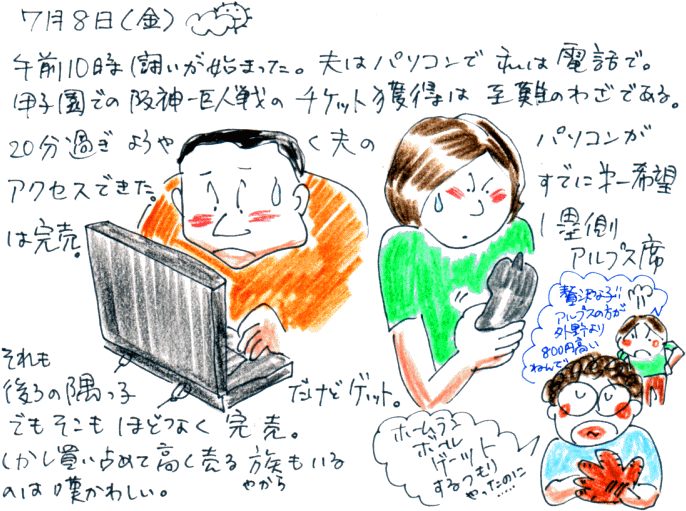 7月8日(金)
午前10時 闘いが始まった。夫はパソコンで 私は 電話で。
甲子園での 阪神-巨人戦の チケット獲得は 至難のわざである。
20分過ぎ ようやく 夫の パソコンが
アクセスできた。 すでに第一希望
は完売。 1塁側
アルプス席
それも
後ろの隅っ子 だけどゲット。
でもそこも ほどなく 完売。
しかし買い占めて 高く売る 族もいる
やから
のは 嘆かわしい。
贅沢な子!!
アルプスの方が
外野より
800円高い
ねんで
ホームラン
ボール
ゲーット
するつもり
やったのに
……